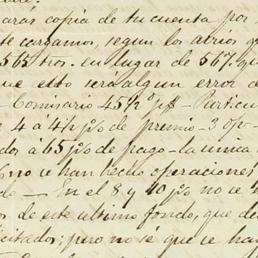 aras copia de tu cuenta por
te cargamos, segun los avios q
565 tros. en lugar de 567.
ue esto será algun error d
Comisario 45½ p% Particu
4 a 4½ p% de premio - 3 op -
dos a 65 p% de pago - la unica
no se han hecho operaciones
do - En el 8 y 10 p% no se
s de este ultimo fondo, que de
icitados; pero no sé que se hay